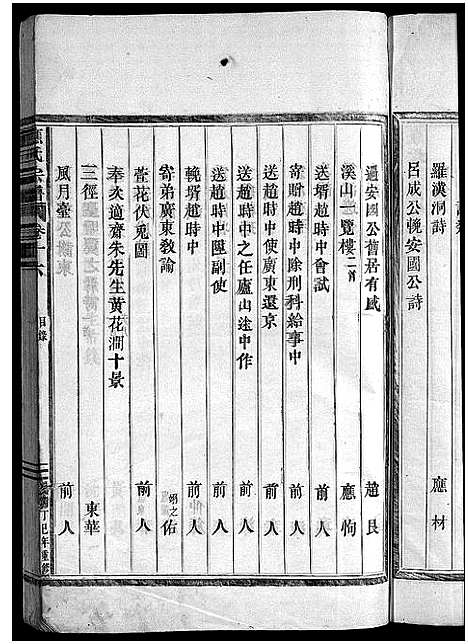 羅漢洞詩 應材
呂成公輓安國公詩
過安國公舊居有感 趙艮
溪山一覽樓二首 應恂
送壻趙時中會試 前人
寄贈趙時中除刑科給事中 前人
送趙時中使廣東還京 前人
送趙時中之任廬山途中作 前人
送趙時中陞副使 前人
輓壻趙時中 前人
寄弟廣東敎諭 翊之佑
萱花伏兎圖 前人
奉次適齋朱先生黄花澗十景
三徑 東華
風月臺 前人
氏宗譜 卷十六 目錄 丁巳年重修